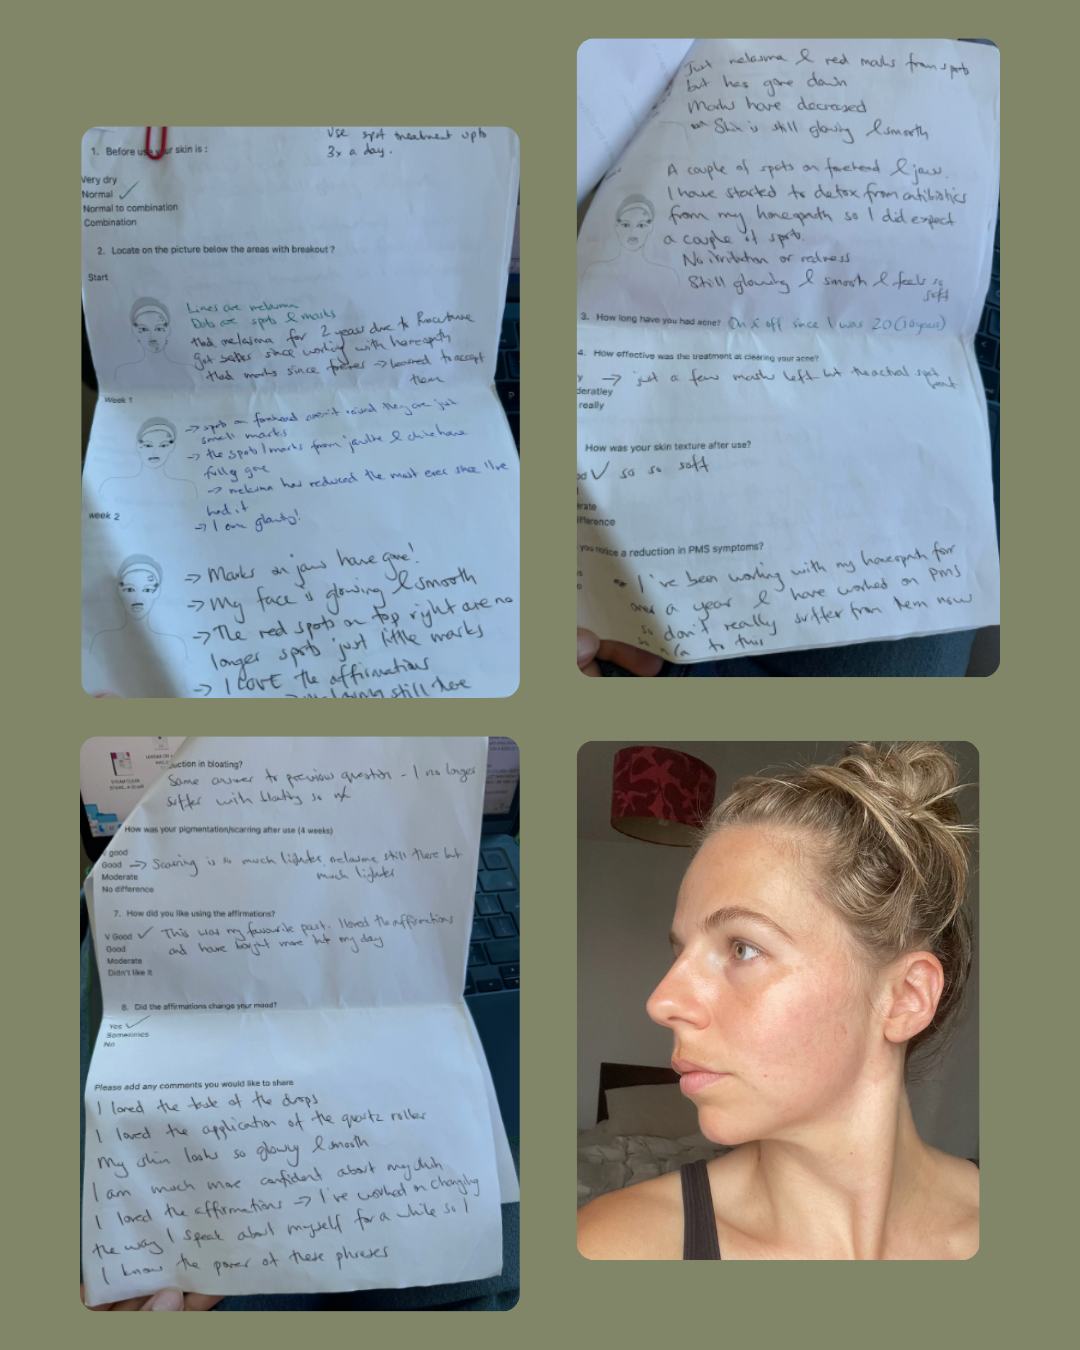 Use spot treatment upto
3x a day.
1. Before use your skin is :
Very dry
Normal ✓
Normal to combination
Combination
2. Locate on the picture below the areas with breakout ?
Start
Lines are melasma
Dots are spots & marks
Had melasma for 2 years due to
got better since working with homeopath
Had marks since forever -> learned to accept
them
Week 1
-> spots on forehead aren't raised they are just
small marks
-> the spots/marks from jawline & chin have
fully gone
-> melasma has reduced the most ever since I've
had it
-> I am glowing!
week 2
-> Marks on jaw have gone!
-> My face is glowing & smooth
-> The red spots on top right are no
longer spots just little marks
-> I LOVE the affirmations
still here
Just melasma & red marks from spots
but has gone down
Marks have decreased
Skin is still glowing & smooth
A couple of spots on forehead & jaw.
I have started to detox from antibiotics
from my homeopath so I did expect
a couple of spots.
No irritation or redness
Still glowing & smooth & feels so
soft
3. How long have you had acne? On & off since I was 20 (10 years)
4. How effective was the treatment at clearing your acne?
y -> just a few marks left but the actual spot
deratley
really
How was your skin texture after use?
od ✓ so so soft
erate
ifference
you notice a reduction in PMS symptoms?
I've been working with my homeopath for
over a year & have worked on PMS
so don't really suffer from them now
so n/a to this
uction in bloating?
Same answer to previous question - I no longer
suffer with bloating so n/a
How was your pigmentation/scarring after use (4 weeks)
V good
Good -> Scarring is so much lighter, melasma still there but
much lighter
Moderate
No difference
7. How did you like using the affirmations?
V Good ✓ This was my favourite part. I loved the affirmations
and have bought more into my day
Good
Moderate
Didn't like it
8. Did the affirmations change your mood?
Yes ✓
Sometimes
No
Please add any comments you would like to share
I loved the taste of the drops
I loved the application of the quartz roller
My skin looks so glowy & smooth
I am much more confident about my skin
I loved the affirmations -> I've worked on changing
the way I speak about myself for a while so I
I know the power of these phrases